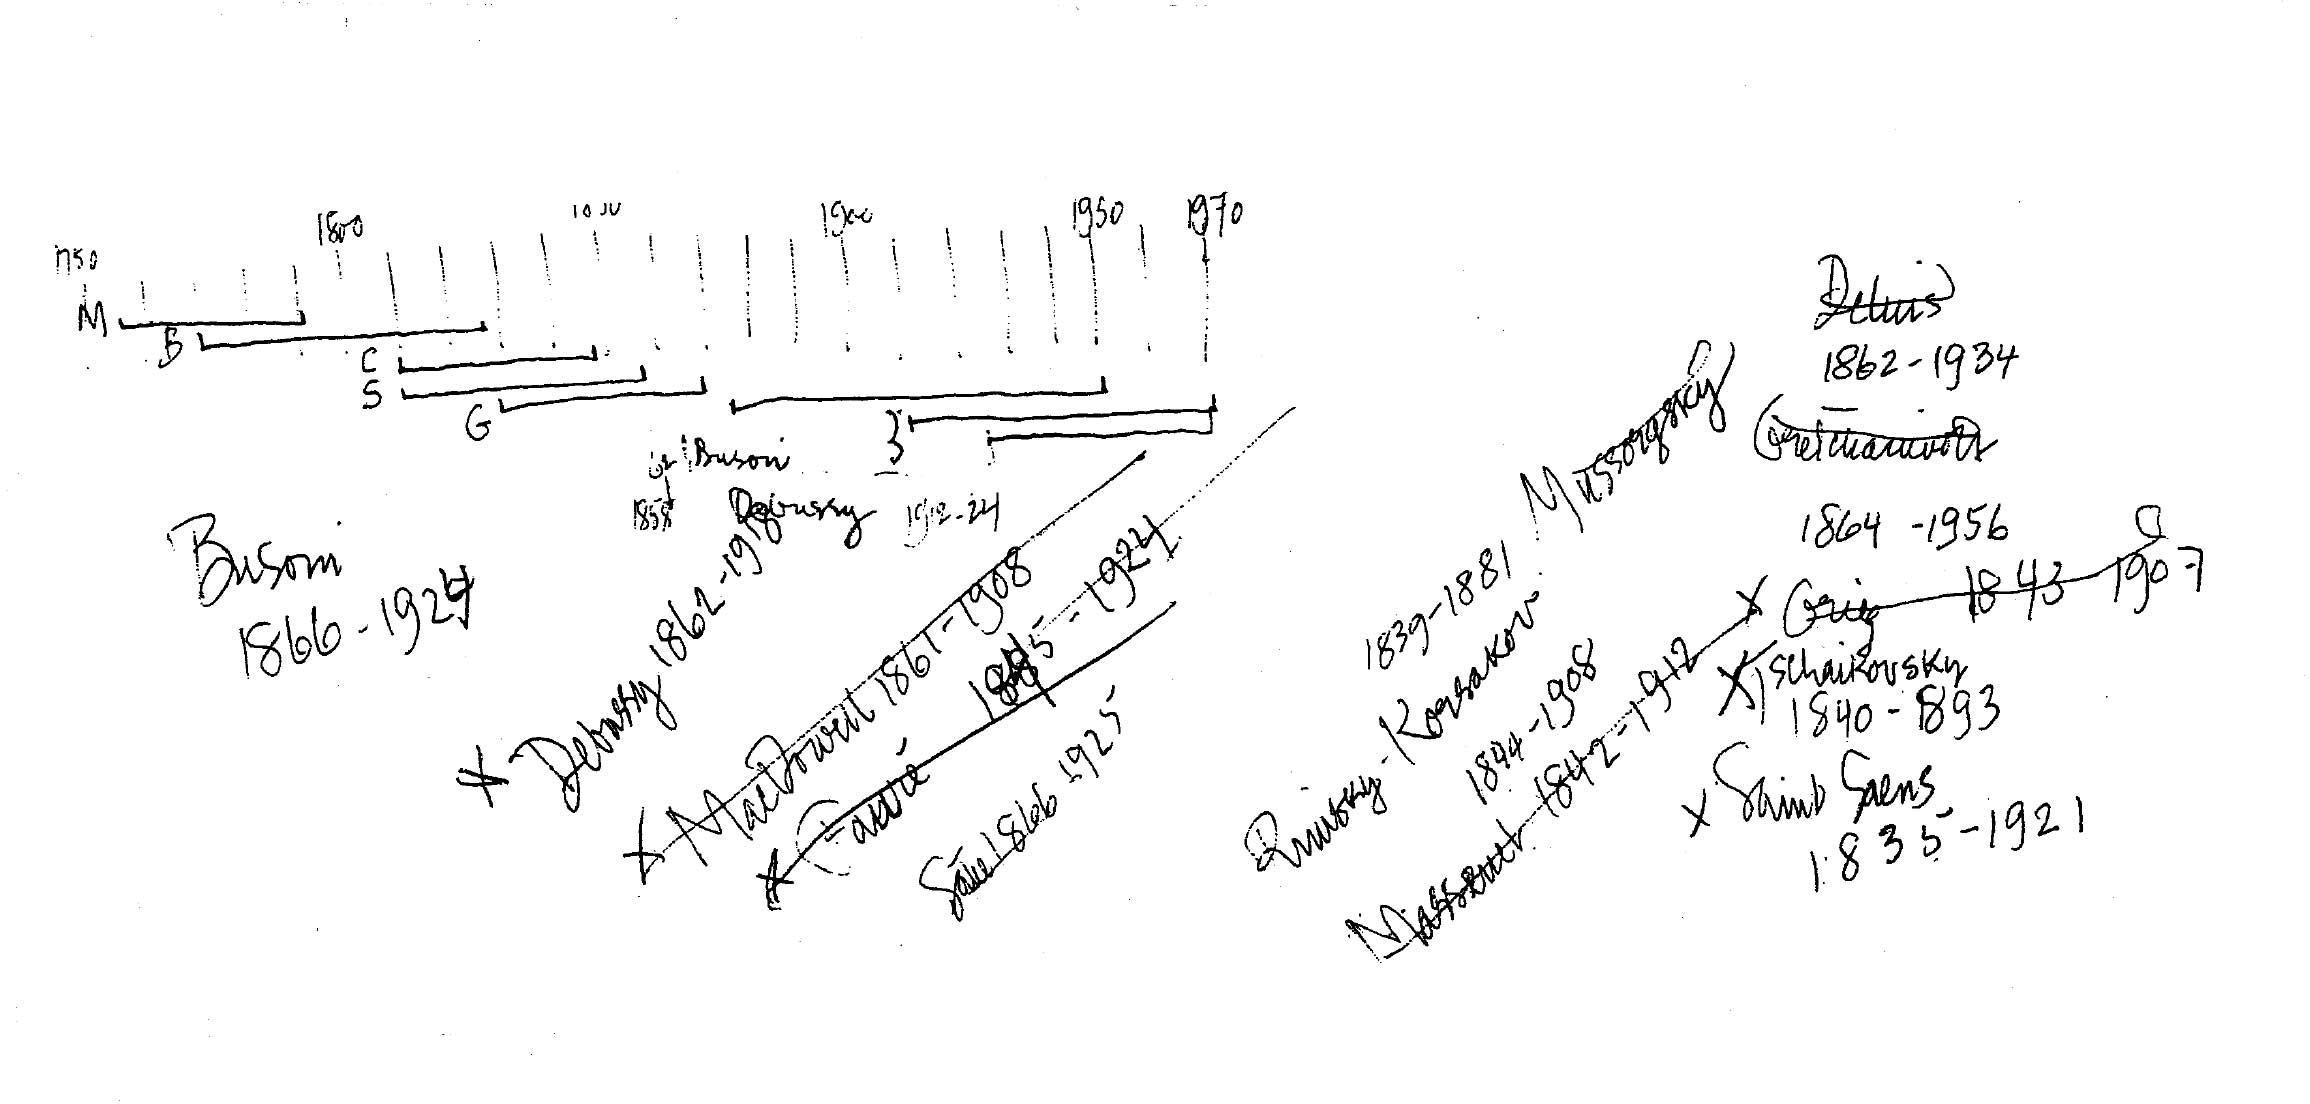 1750 1800 1900 1950 1970
M
B
C
S
G
3
Busoni
1858 Debussy 1912-24
Busoni
1866-1924
Debussy 1862-1918
MacDowell 1861-1908
Fauré 1845-1924
Satie 1866-1925
Mussorgsky
1839-1881
Rimsky-Korsakov
1844-1908
Massenet 1842-1912
Delius
1862-1934
Gretchaninoff
1864-1956
Grieg 1843 1907
Tschaikovsky
1840-1893
Saint Saens
1835-1921